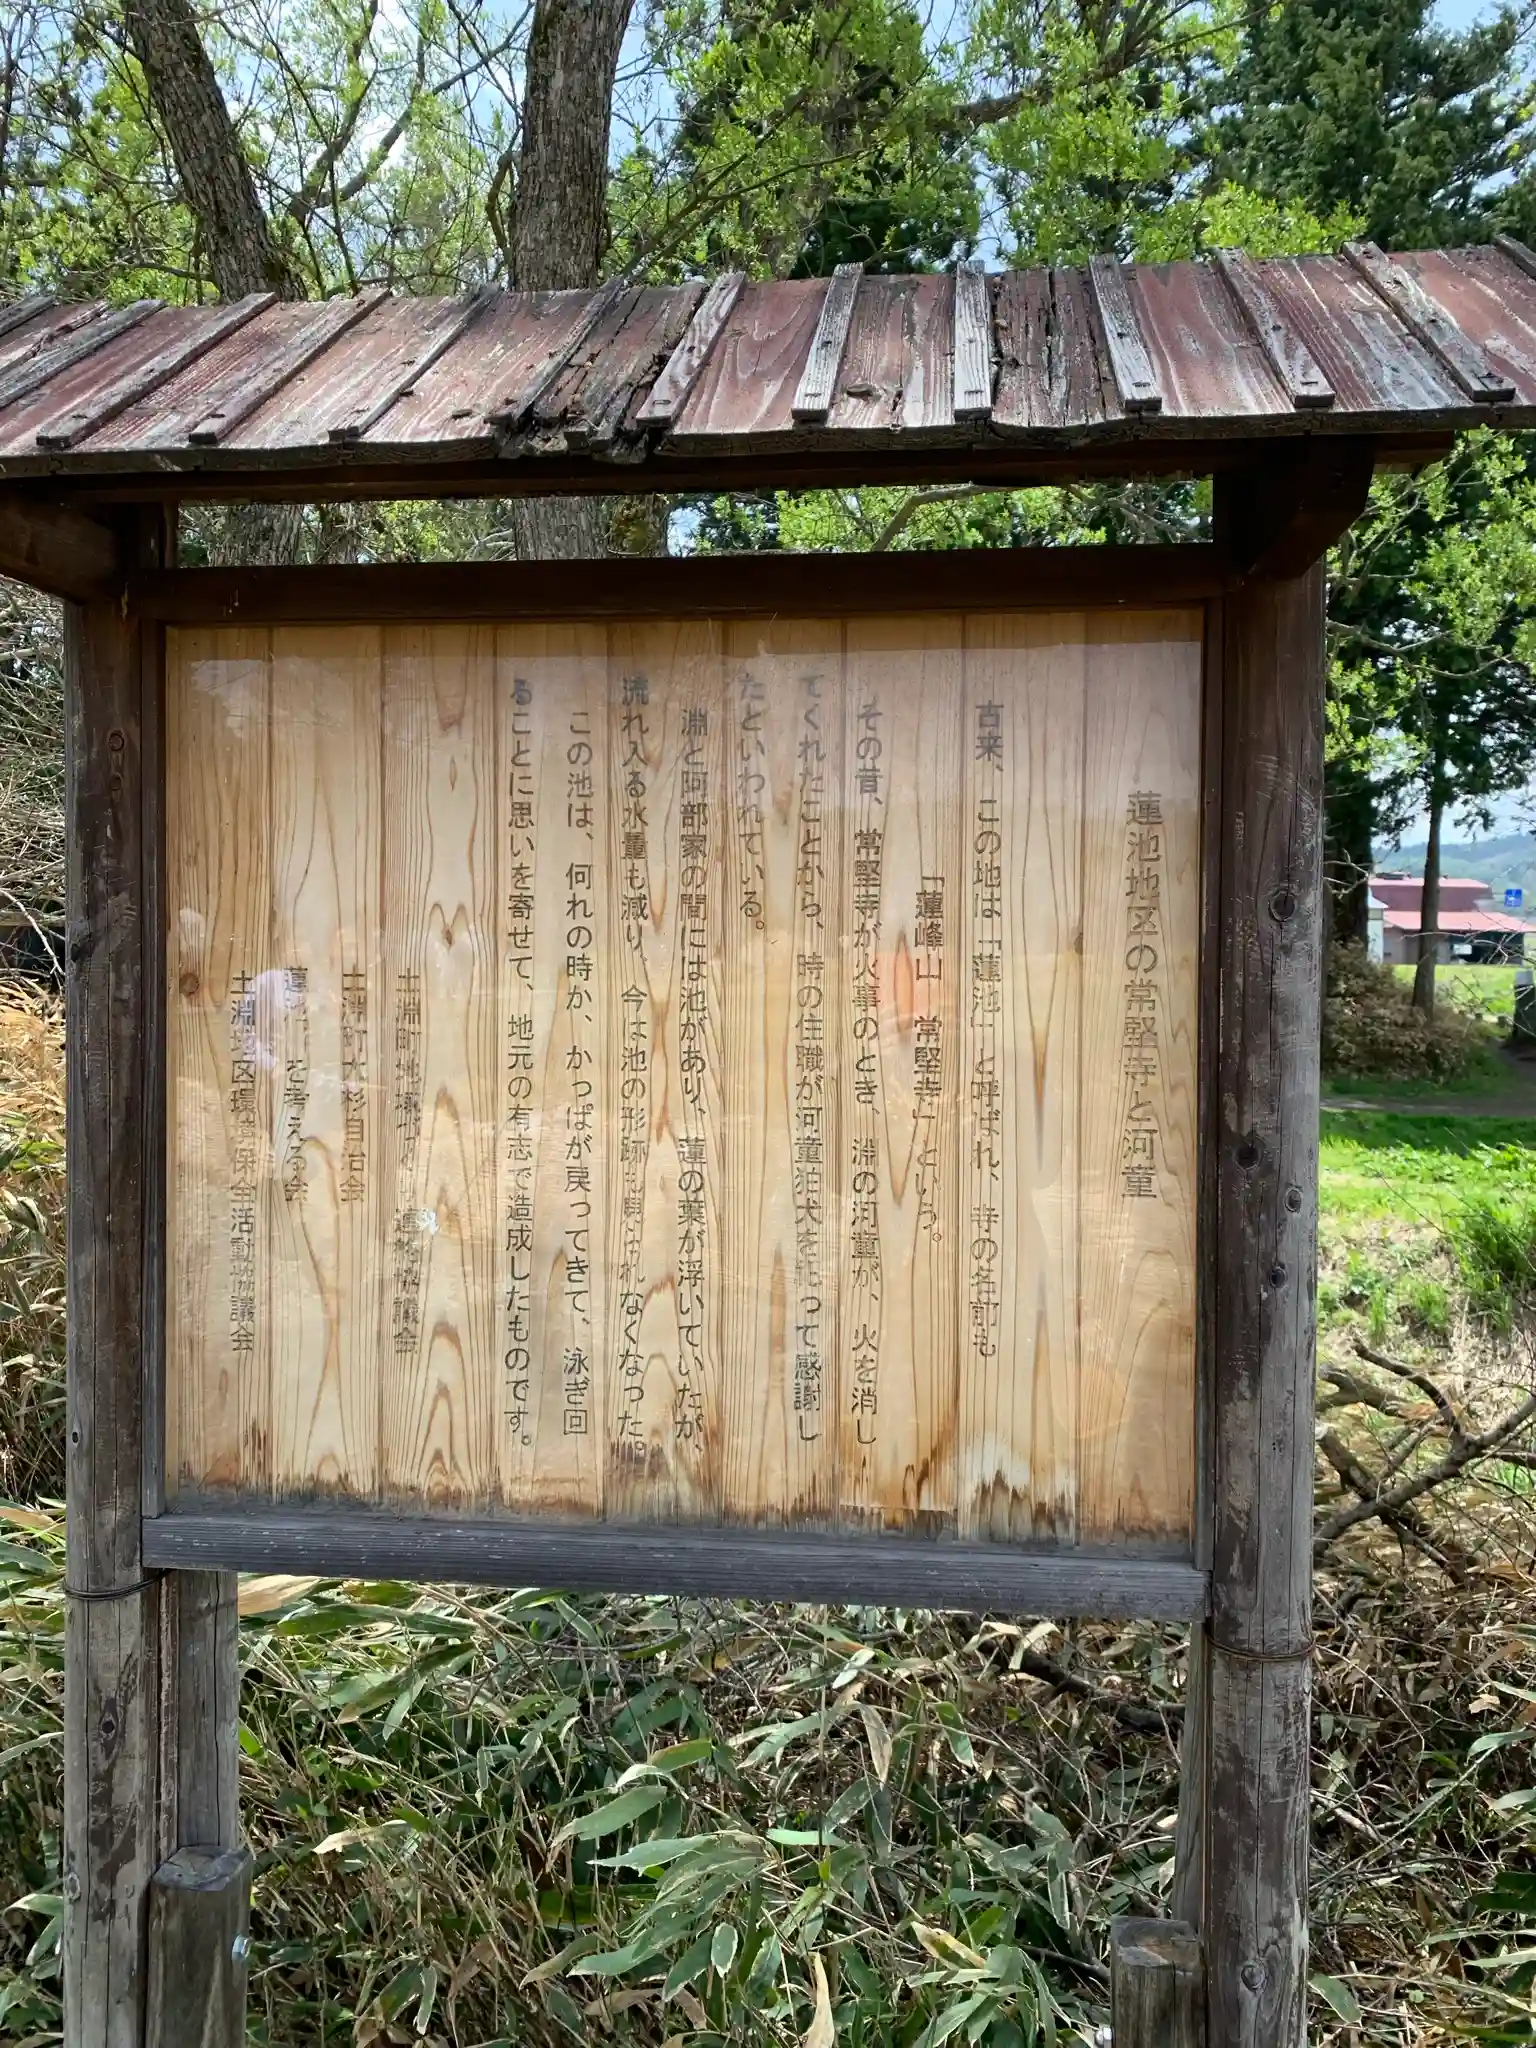 蓮池地区の常堅寺と河童
古来、この地は「蓮池」と呼ばれ、寺の名前も
「蓮峰山 常堅寺」という。
その昔、常堅寺が火事のとき、淵の河童が、火を消し
てくれたことから、時の住職が河童狛犬を祀って感謝し
たといわれている。
淵と阿部家の間には池があり、蓮の葉が浮いていたが、
流れ入る水量も減り、今は池の形跡も見られなくなった。
この池は、何れの時か、かっぱが戻ってきて、泳ぎ回
ることに思いを寄せて、地元の有志で造成したものです。
土淵町地域づくり連絡協議会
土淵町水杉自治会
蓮池 を考える会
土淵地区環境保全活動協議会